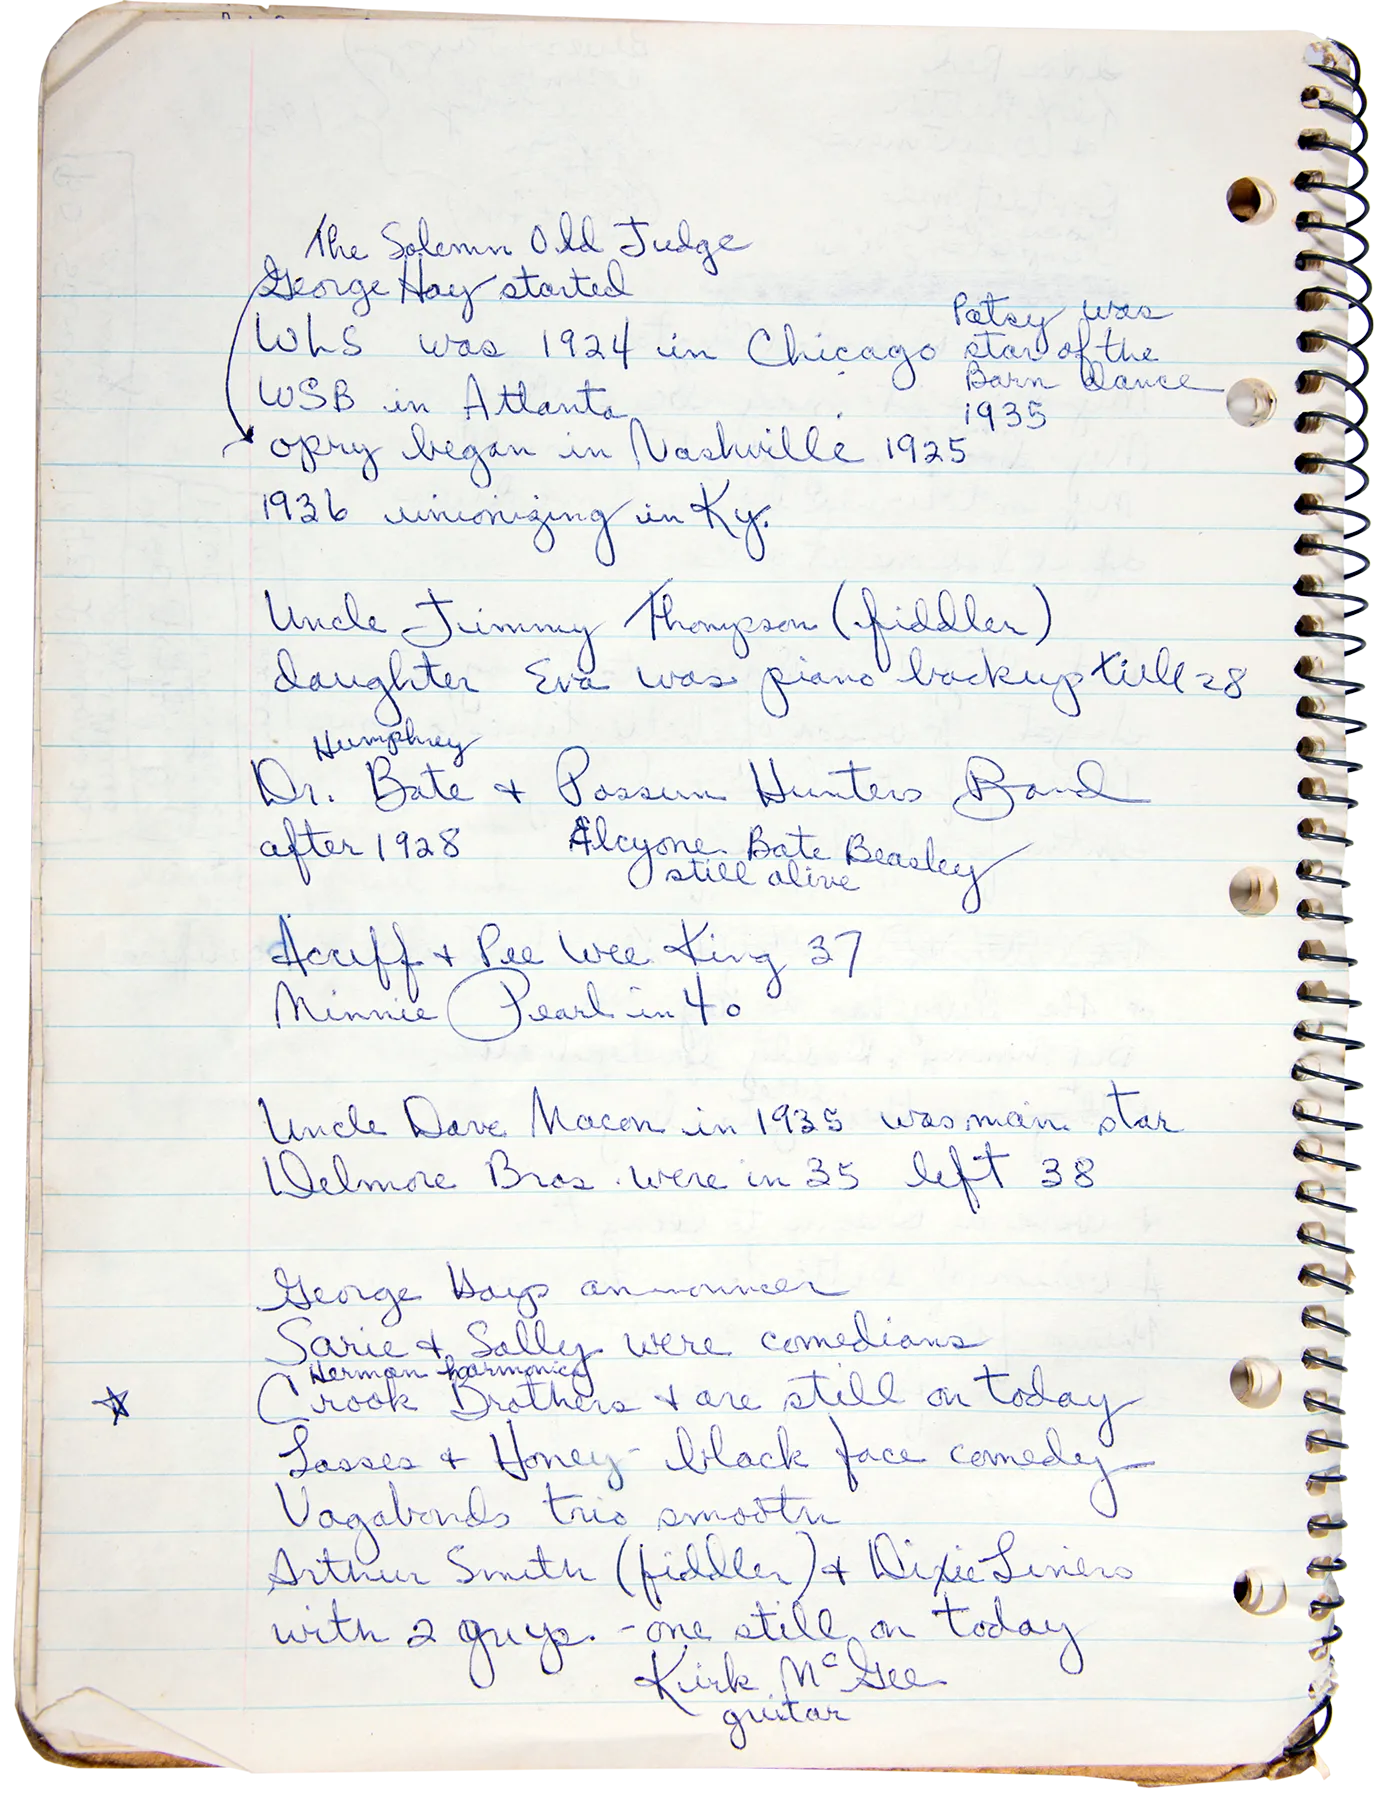 The Solemn Old Judge
George Hay started
WLS was 1924 in Chicago
Patsy was
star of the
Barn dance
1935
WSB in Atlanta
opry began in Nashville 1925
1936 unionizing in Ky.
Uncle Jimmy Thompson (fiddler)
daughter Eva was piano backup till 28
Humphrey
Dr. Bate + Possum Hunters Band
after 1928 Alcyone Bate Beasley
still alive
Acuff + Pee Wee King 37
Minnie Pearl in 40
Uncle Dave Macon in 1935 was main star
Delmore Bros. were in 35 left 38
George Hays announcer
Sarie + Sally were comedians
Herman harmonica
Crook Brothers + are still on today
Lasses + Honey - black face comedy
Vagabonds trio smooth
Arthur Smith (fiddler) + Dixie Liners
with 2 guys. - one still on today
Kirk McGee
guitar